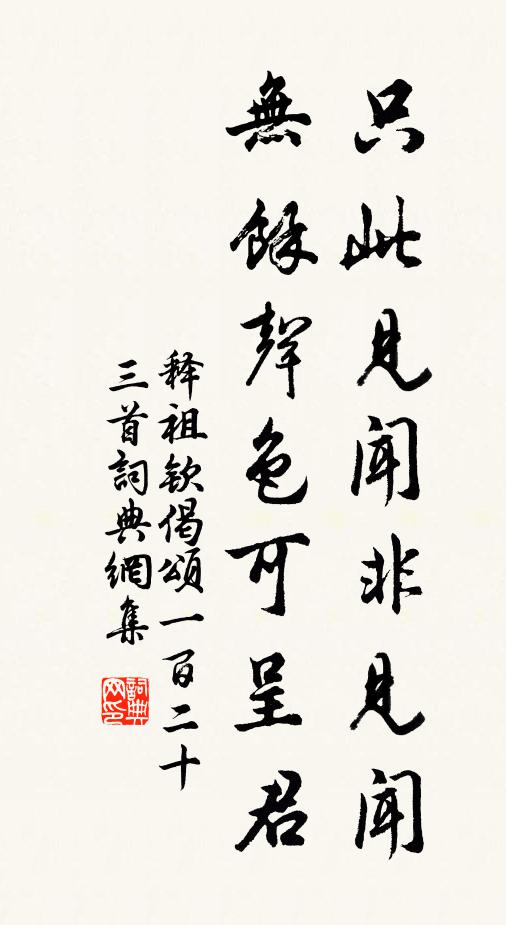 只此見聞非見聞
無餘聲色可呈君
释祖欽偈頌一百二十
三首詞典網集
詞典網印